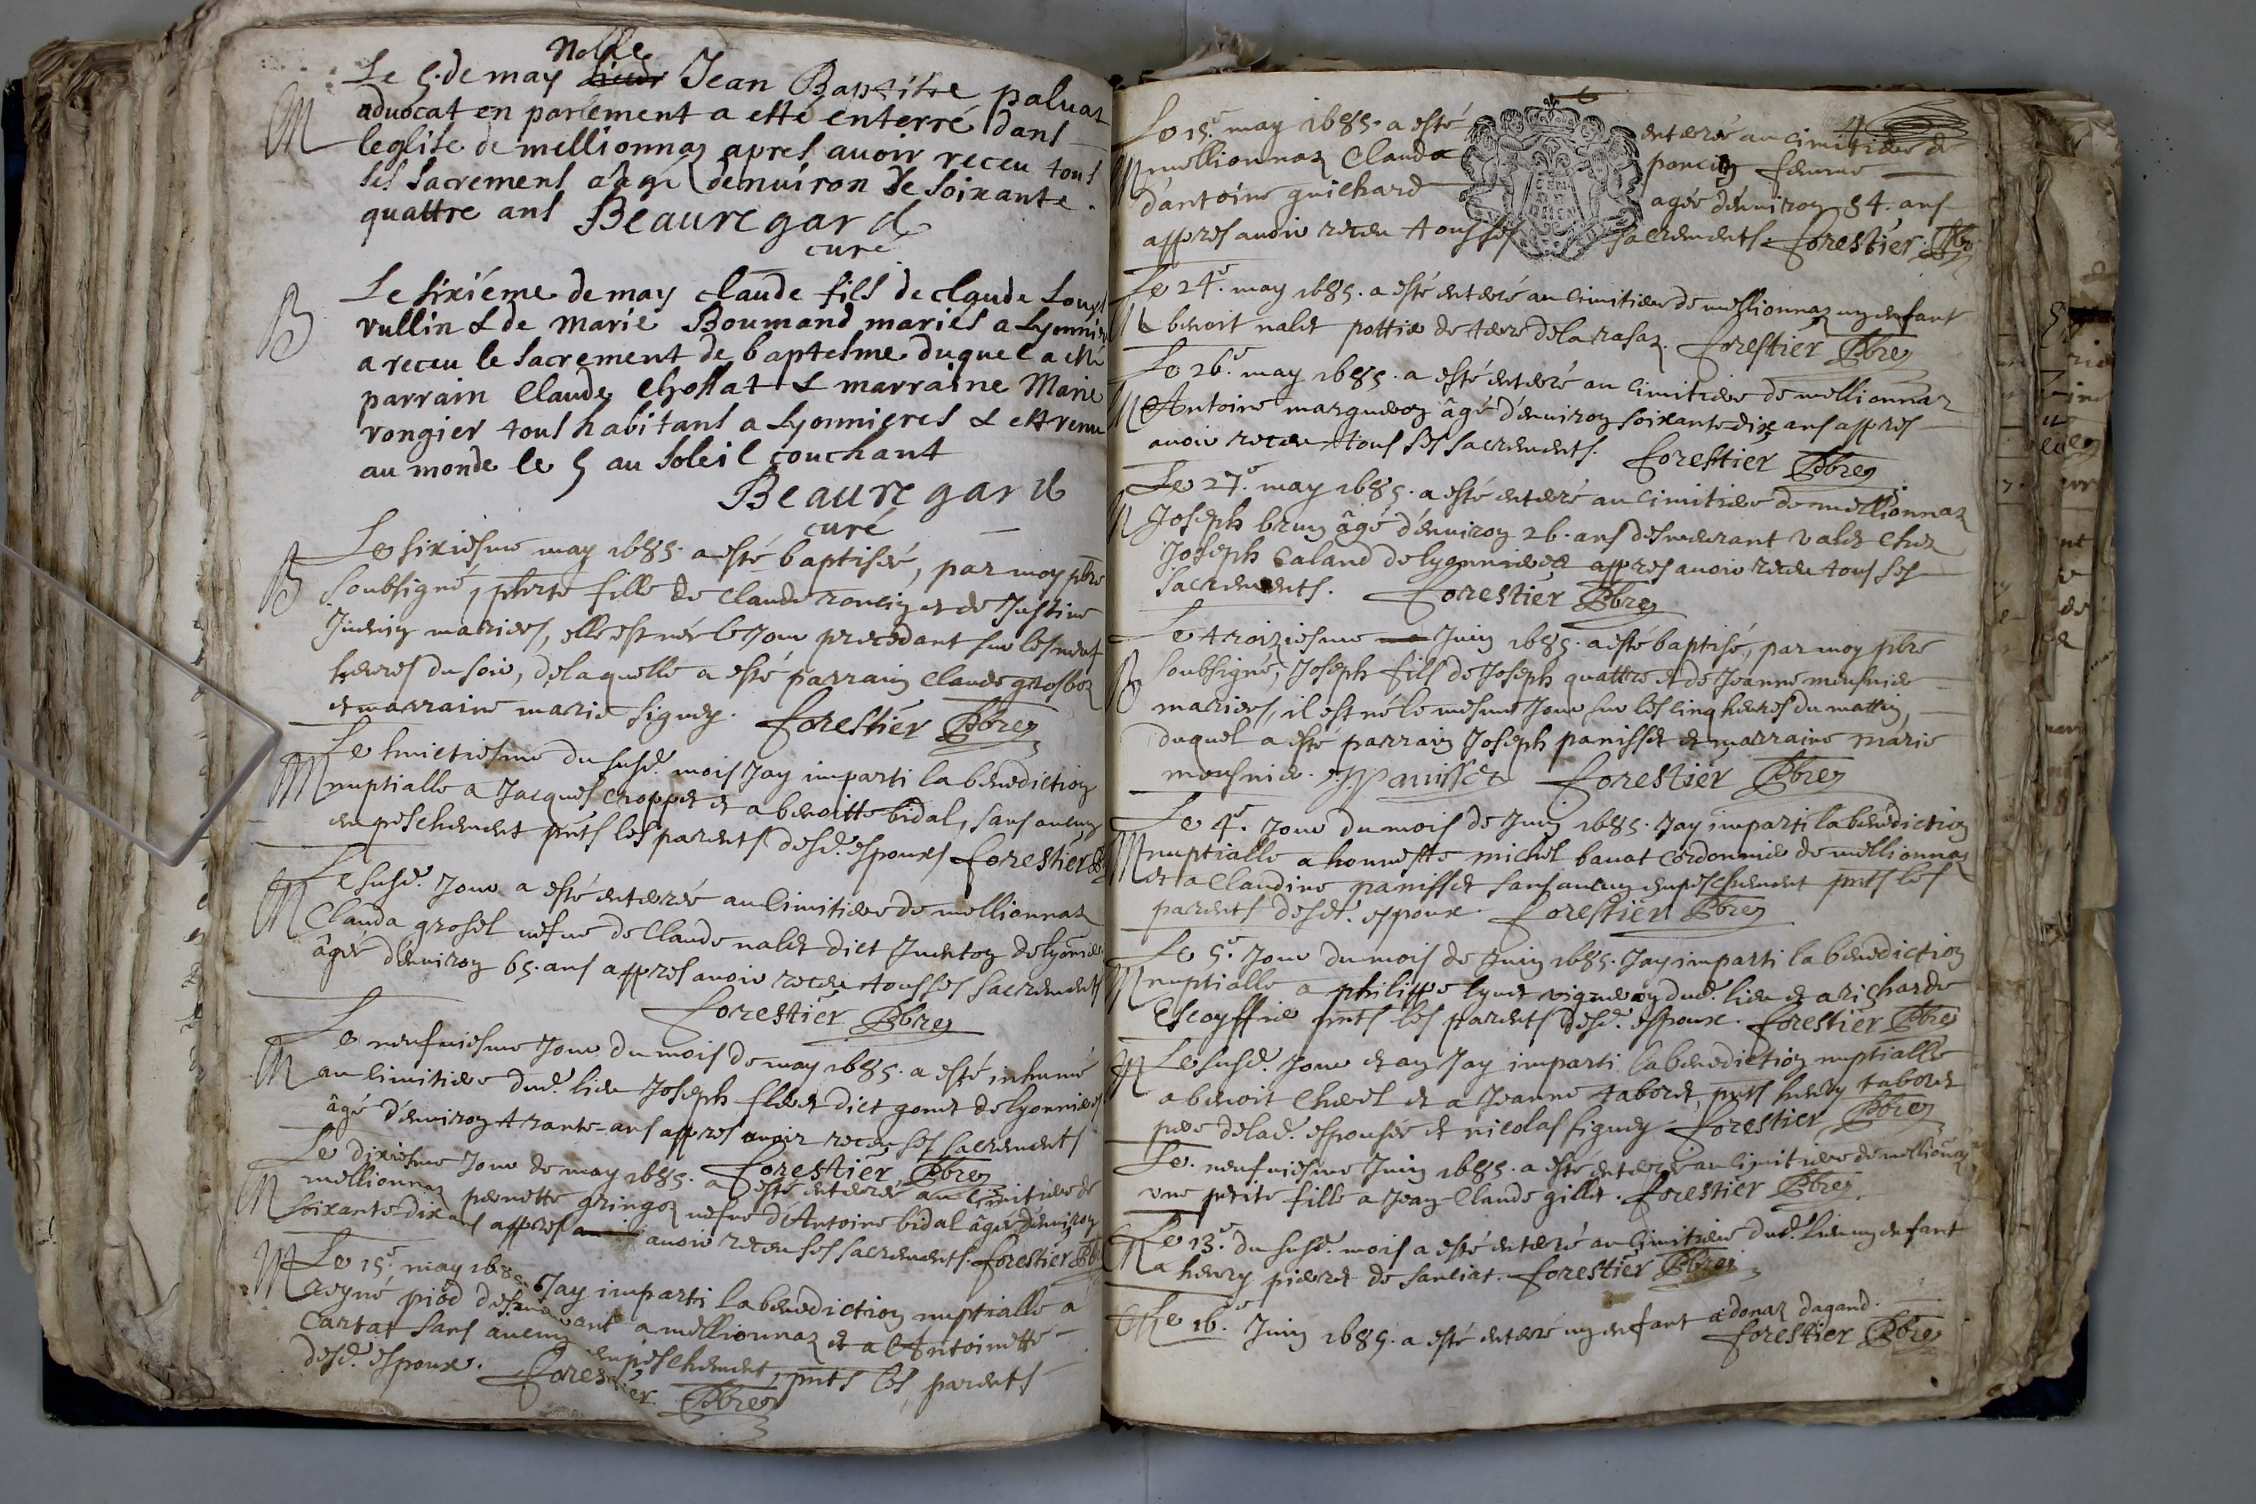 Noble
Le 5. de may Jean Baptiste paluat
M advocat en parlement a esté enterré dans
leglise de mellionnaz apres avoir receu tous
ses sacrement agé denuiron de soixante
quattre ans Beauregard
curé
Le sixiéme de may claude fils de claude Louys
B vullin & de Marie Boumand mariés a Lyonnier
a receu le sacrement de baptesme duquel a esté
parrain Claude Chossat & marraine Marie
rongier tous habitans a Lyonnieres & est venu
au monde le 5 au soleil couchant
Beauregard
curé
Le sixiesme may 1685. a esté baptisée, par moy pbre
B soubsigné, fille de Claude roncin et de Justine
mariers, elle est née le Jour precedant sur les neuf
heures du soir, delaquelle a esté parrain Claude grosboz
et marraine marie figuey. forestier Pbre
Le huictiesme du susd. mois Jay imparti la benediction
M nuptialle a Jacques croppet et a benoitte bidal, sans aucun
empeschement pnts les parents desd. espoux forestier
Le susd. Jour a esté enterée au Cimitiere de mellionnaz
M Clauda grosel uefue de Claude nalet dict Juenton de lyonnier
âgée d'enuiron 65. ans appres auoir receu tous ses sacrements
forestier Pbre
Le neufuiesme Jour du mois de may 1685. a esté inhumé
M au cimitiere dud. lieu Joseph dict gonet de lyonnieres
âgé d'enuiron trante ans appres auoir receu ses sacrements
forestier Pbre
Le dixiesme Jour de may 1685. a esté enterée au Cimitiere de
M mellionnaz pernette gringoz uefue d'Antoine bidal âgée d'enuiron
soixante dix ans appres auoir receu ses sacrements. forestier Pb
Le 15e. may 1685. Jay imparti la benediction nuptialle a
M reyné piod demeurant a mellionnaz et a Antoinette
Cartat sans aucun empeschement, pnts les parents
desd. espoux. forestier Pbre
Le 15e. may 1685. a esté enterée au cimitiere de
M mellionnaz Clauda poncin femme
d'antoine guichard agée d'enuiron 54. ans
appres auoir receu tous ses sacrements. forestier. Pbre
Le 24e. may 1685. a esté enteré au Cimitiere de mellionnaz un enfant
M benoit nalet pottier de terre de la rasaz. forestier Pbre
Le 26e. may 1685. a esté enteré au Cimitiere de mellionnaz
M Antoine margueron âgé d'enuiron soixante dix ans appres
auoir receu tous ses sacrements. forestier Pbre
Le 27e. may 1685. a esté enteré au Cimitiere de mellionnaz
M Joseph brun âgé d'enuiron 26. ans demeurant valet chez
Joseph Caland de lyonnieres appres auoir receu tous ses
sacrements. forestier Pbre
Le troiziesme Juin 1685. a esté baptisé, par moy pbre
B soubsigné, Joseph fils de Joseph quattre et de Jeanne meusnier
mariers, il est né le mesme Jour sur les cinq heures du mattin,
duquel a esté parrain Joseph panisset et marraine marie
meusnier. J panisset forestier Pbre
Le 4e. Jour du mois de Juin 1685. Jay imparti la benediction
M nuptialle a honneste michel bauat cordonnier de mellionnaz
et a Claudine panisset sans aucun empeschement pnts les
parents desdt. espoux. forestier Pbre
Le 5e. Jour du mois de Juin 1685. Jay imparti la benediction
M nuptialle a philippe lynet vigneron dud. lieu et a richarde
Escoffier pnts les parents desd. espoux. forestier Pbre
M Le susd. Jour et an Jay imparti la benediction nuptialle
a benoit Chevel et a Jeanne taboret, pnts henry taboret
pere de lad. espousée et nicolas figuey. forestier Pbre
Le. neufuiesme Juin 1685. a esté enterée au cimitiere de mellionaz
une petite fille a Jean Claude gillet. forestier Pbre
Le 13e. du susd. mois a esté enteré au Cimitiere dud. lieu un enfant
M a henry pierret de sanciat. forestier Pbre
Le 16e. Juin 1685. a esté enteré un enfant a donaz dagand.
forestier Pbre